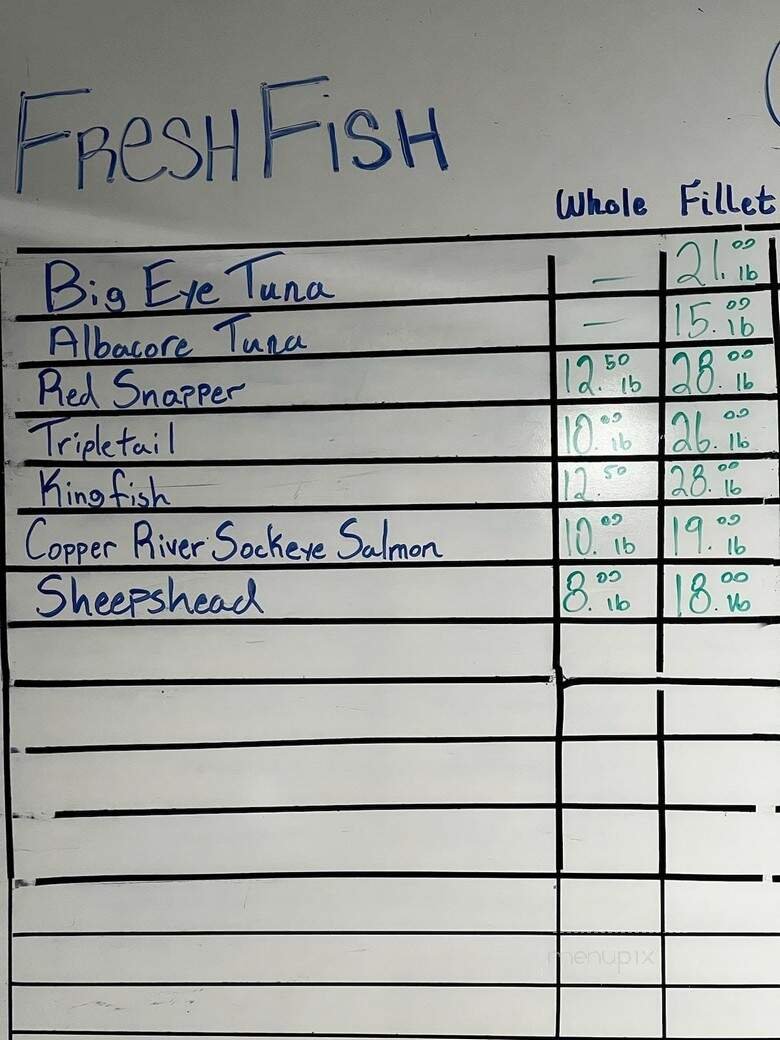 FRESH FISH
Whole Fillet
Big Eye Tuna — 21.00 lb
Albacore Tuna — 15.00 lb
Red Snapper 12.50 lb 28.00 lb
Tripletail 10.00 lb 26.00 lb
Kingfish 12.50 28.00 lb
Copper River Sockeye Salmon 10.00 lb 19.00 lb
Sheepshead 8.00 lb 18.00 lb
menupix